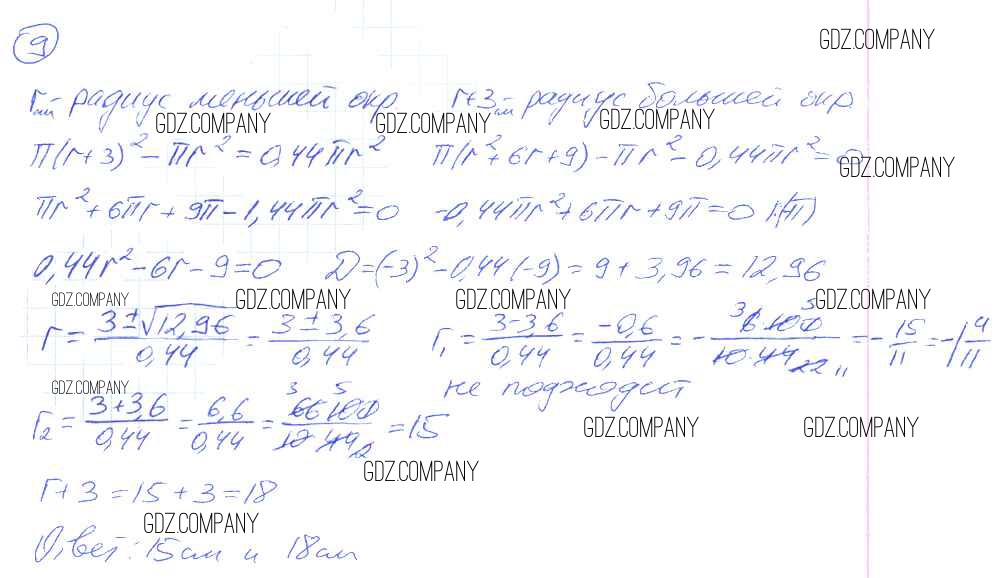 9
GDZ.COMPANY
r см - радиус меньшей окр r+3 см - радиус большей окр
GDZ.COMPANY GDZ.COMPANY GDZ.COMPANY
π(r+3)² - πr² = 0,44πr² π(r²+6r+9) - πr² - 0,44πr² = 0
GDZ.COMPANY
πr² + 6πr + 9π - 1,44πr² = 0 -0,44πr² + 6πr + 9π = 0 |:(-π)
0,44r² - 6r - 9 = 0 D = (-3)² - 0,44(-9) = 9 + 3,96 = 12,96
GDZ.COMPANY GDZ.COMPANY GDZ.COMPANY GDZ.COMPANY
r = (3 ± √12,96)/0,44 = (3 ± 3,6)/0,44 r₁ = (3-3,6)/0,44 = (-0,6)/0,44 = -(6·100)/(10·44) = -15/11 = -1 4/11
GDZ.COMPANY не подходит
r₂ = (3+3,6)/0,44 = 6,6/0,44 = (66·100)/(10·44) = 15
GDZ.COMPANY GDZ.COMPANY
GDZ.COMPANY
r+3 = 15+3 = 18
GDZ.COMPANY
Ответ: 15см и 18см